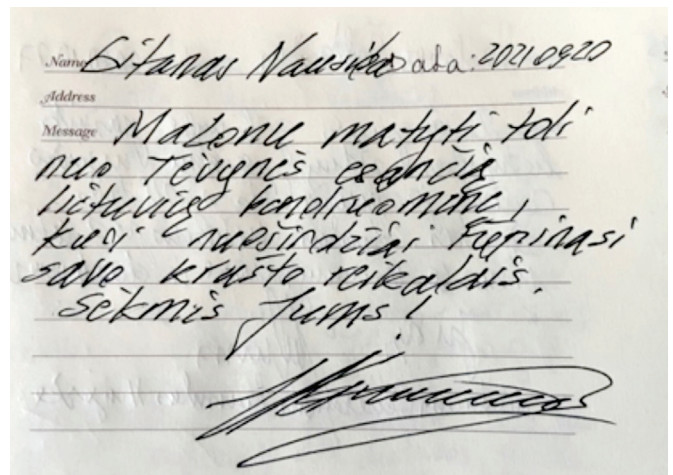 Name Gitanas Nausėda Data: 20210920
Address
Message Malonu matyti toli
nuo Tėvynės esančią
lietuvių bendruomenę,
kuri nuoširdžiai rūpinasi
savo krašto reikalais.
Sėkmės Jums!